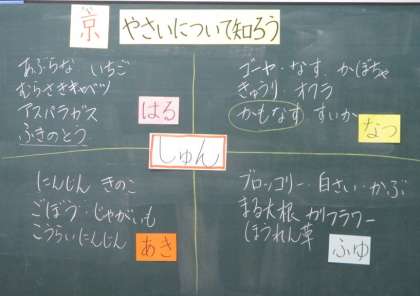 京 やさいについて知ろう
あぶらな いちご
むらさきキャベツ
アスパラガス
ふきのとう
はる
ゴーヤ・なす・かぼちゃ
きゅうり・オクラ
かもなす・すいか
なつ
しゅん
にんじん きのこ
ごぼう・じゃがいも
こうらいにんじん
あき
ブロッコリー・白さい・かぶ
まる大根 カリフラワー
ほうれん草
ふゆ